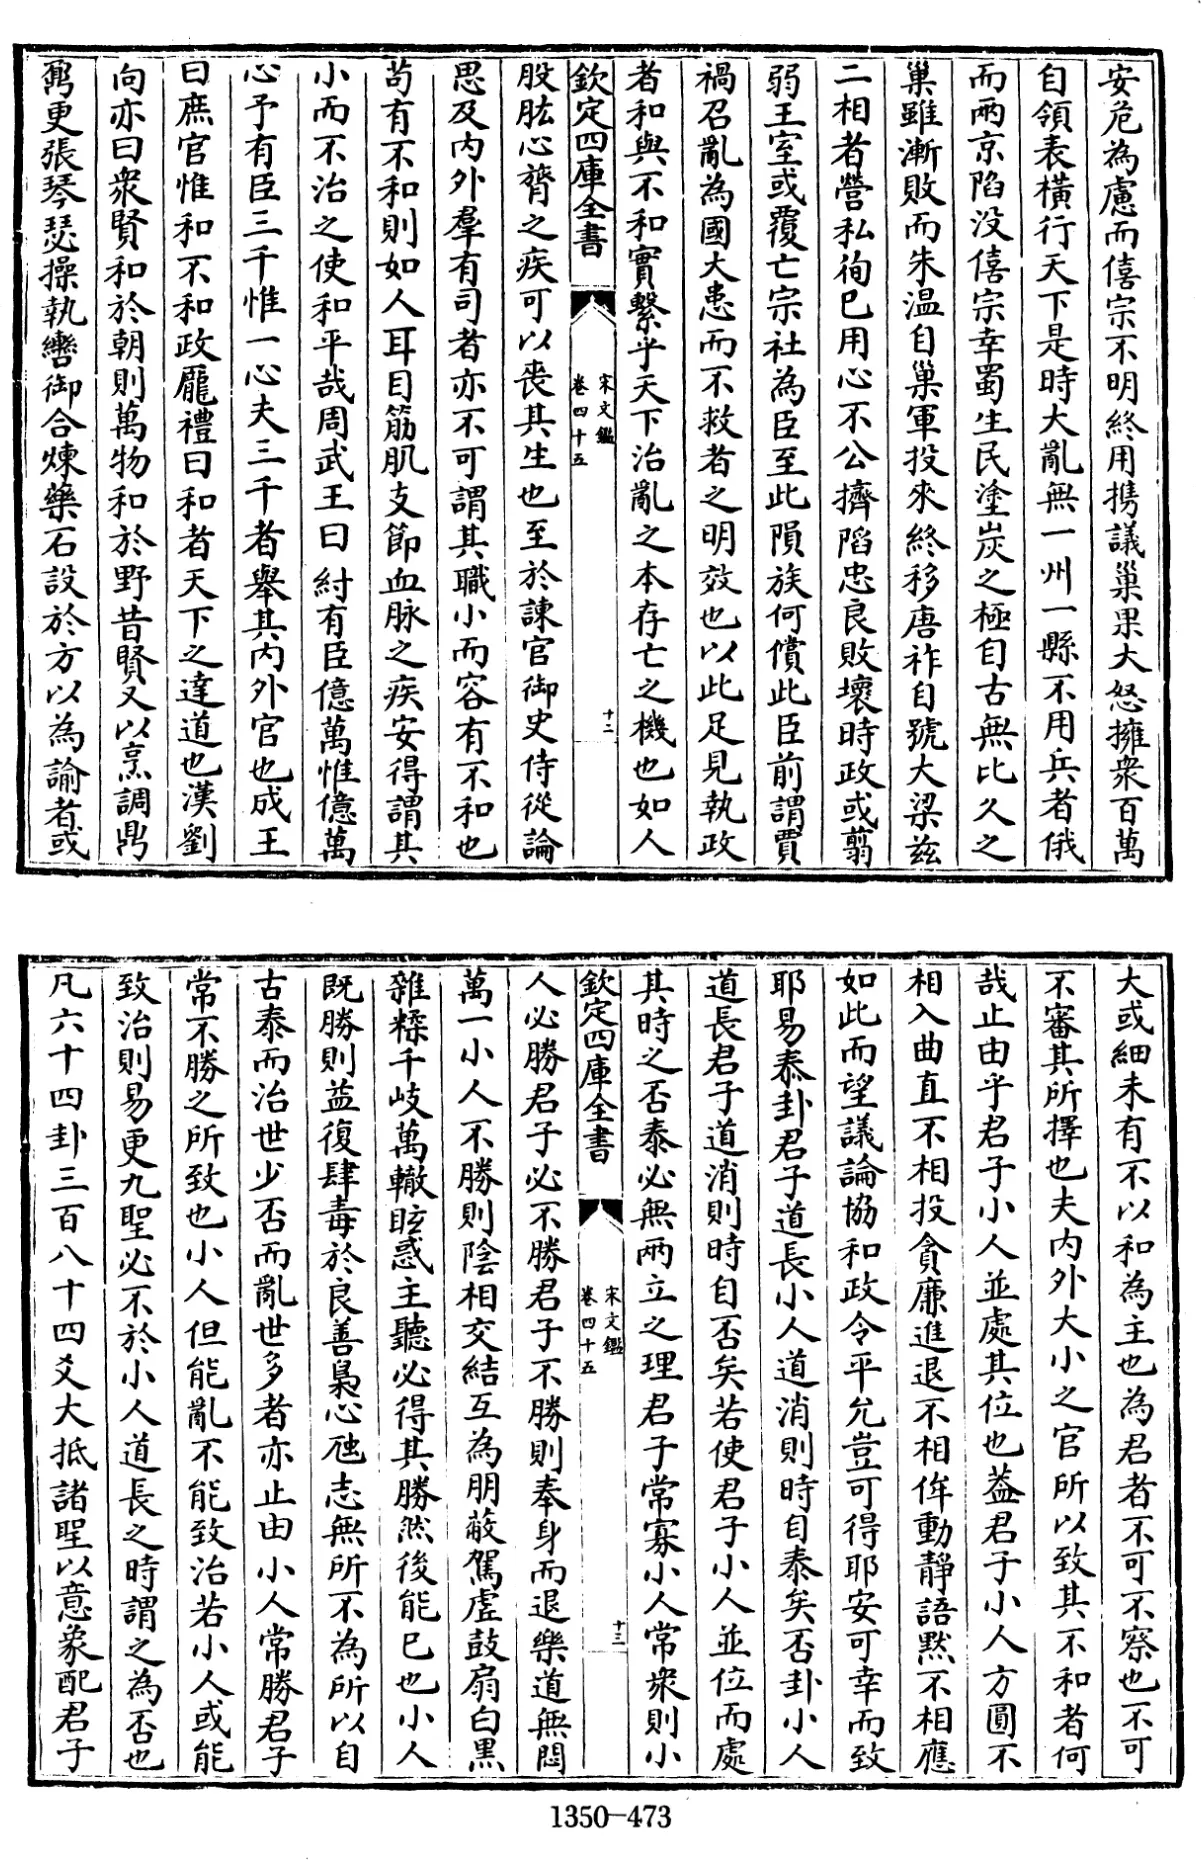 安危為慮而僖宗不明終用攜議巢果大怒擁衆百萬
自領表橫行天下是時大亂無一州一縣不用兵者俄
而兩京陷没僖宗幸蜀生民塗炭之極自古無比久之
巢雖漸敗而朱温自巢軍投來終移唐祚自號大梁兹
二相者營私徇已用心不公擠陷忠良敗壞時政或翦
弱王室或覆亡宗社為臣至此隕族何償此臣前謂賈
禍召亂為國大患而不救者之明效也以此足見執政
者和與不和實繫乎天下治亂之本存亡之機也如人
欽定四庫全書
宋文鑑
卷四十五
十二
股肱心膂之疾可以喪其生也至於諫官御史侍從論
思及内外羣有司者亦不可謂其職小而容有不和也
苟有不和則如人耳目筋肌支節血脉之疾安得謂其
小而不治之使和平哉周武王曰紂有臣億萬惟億萬
心予有臣三千惟一心夫三千者舉其内外官也成王
曰庶官惟和不和政龎禮曰和者天下之達道也漢劉
向亦曰衆賢和於朝則萬物和於野昔賢又以烹調鼎
鼐更張琴瑟操執轡御合煉藥石設於方以為諭者或
大或細未有不以和為主也為君者不可不察也不可
不審其所擇也夫内外大小之官所以致其不和者何
哉止由乎君子小人並處其位也葢君子小人方圓不
相入曲直不相投貪廉進退不相侔動靜語黙不相應
如此而望議論協和政令平允豈可得耶安可幸而致
耶易泰卦君子道長小人道消則時自泰矣否卦小人
道長君子道消則時自否矣若使君子小人並位而處
其時之否泰必無兩立之理君子常寡小人常衆則小
欽定四庫全書
宋文鑑
卷四十五
十三
人必勝君子必不勝君子不勝則奉身而退樂道無悶
萬一小人不勝則陰相交結互為朋蔽駕虚鼓扇白黒
雜糅千岐萬轍眩惑主聽必得其勝然後能已也小人
既勝則益復肆毒於良善梟心虺志無所不為所以自
古泰而治世少否而亂世多者亦止由小人常勝君子
常不勝之所致也小人但能亂不能致治若小人或能
致治則易更九聖必不於小人道長之時謂之為否也
凡六十四卦三百八十四爻大抵諸聖以意象配君子
1350-473